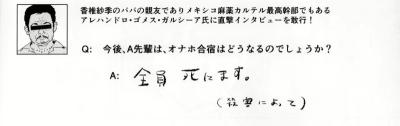 香椎紗季のパパの親友でありメキシコ麻薬カルテル最高幹部でもある
アレハンドロ・ゴメス・ガルシーア氏に直撃インタビューを敢行！
Q: 今後、A先輩は、オナホ合宿はどうなるのでしょうか？
A: 全員 死にます。
（殺害によって）